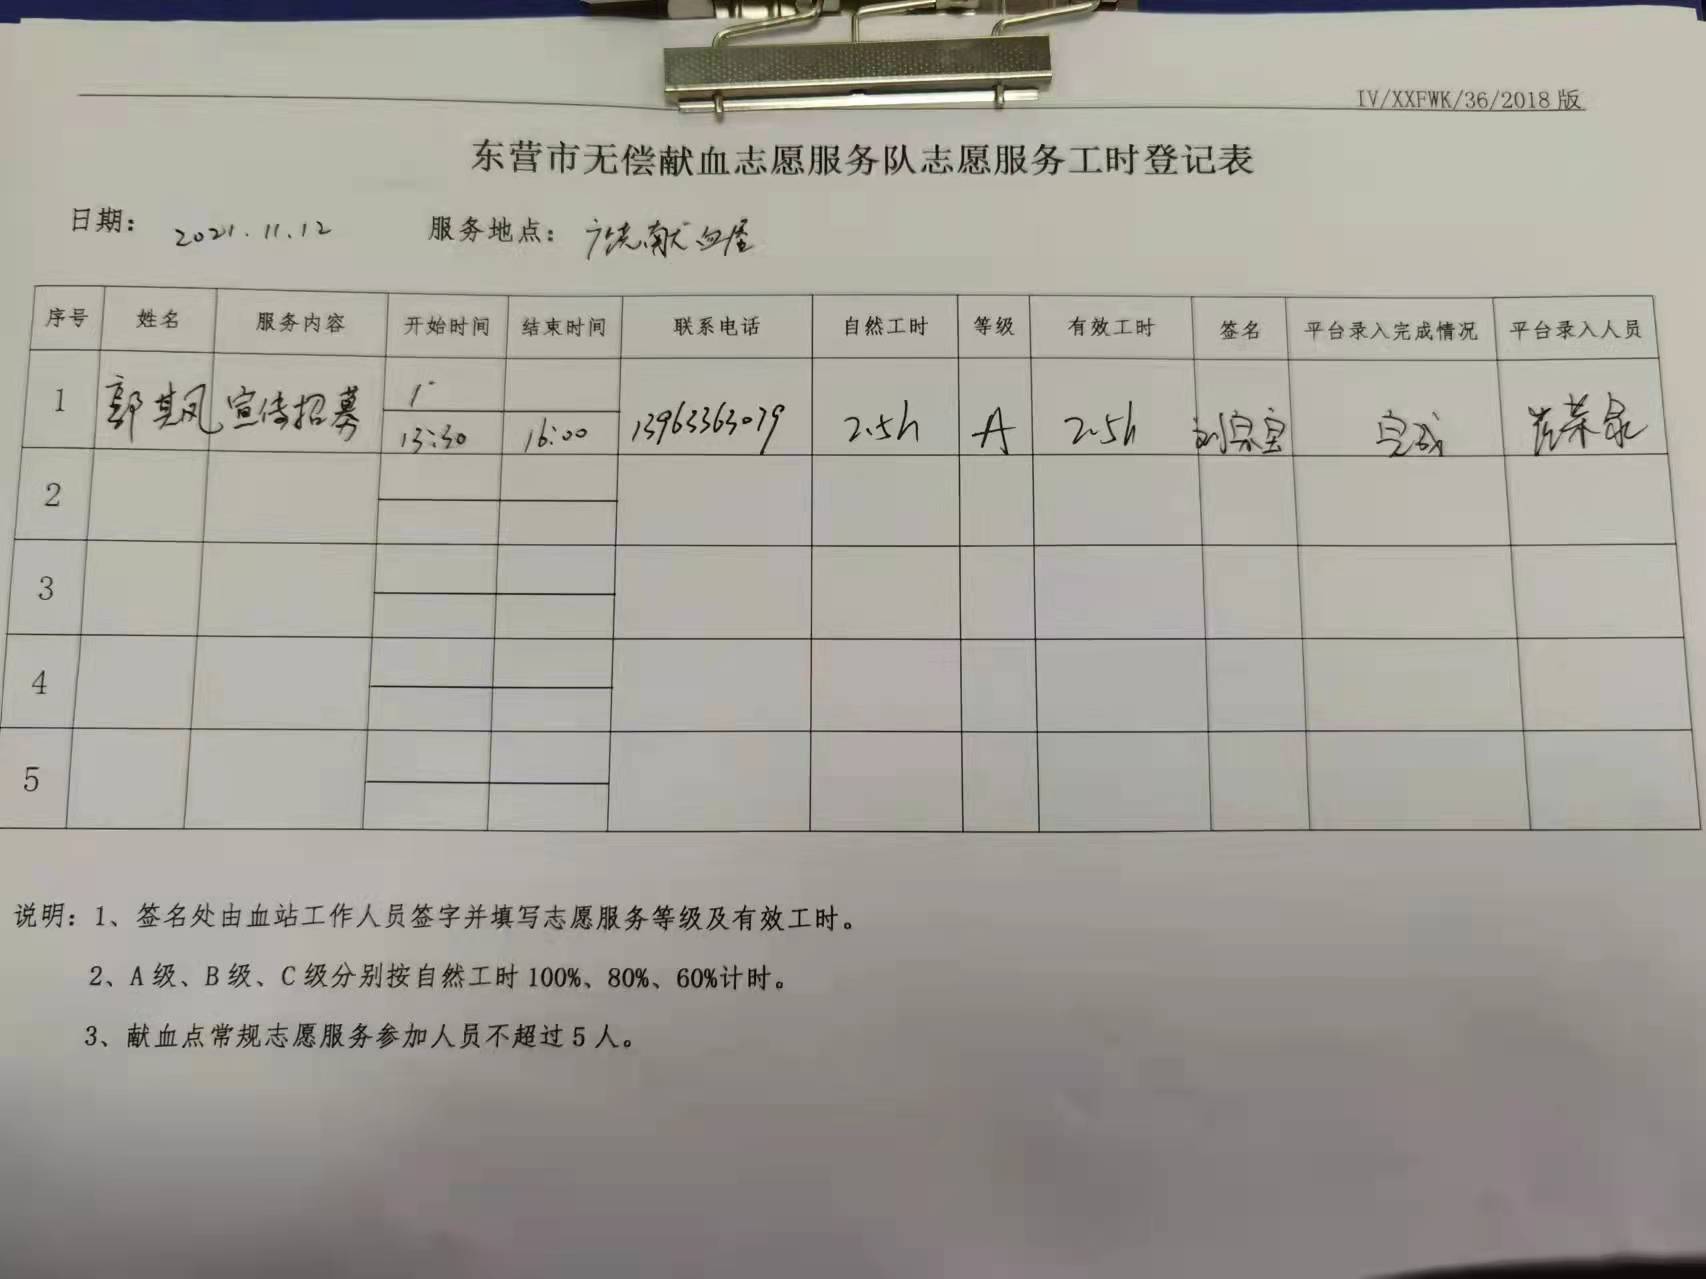 IV/XXFWK/36/2018版
东营市无偿献血志愿服务队志愿服务工时登记表
日期： 2021.11.12 服务地点： 广饶献血屋
序号 姓名 服务内容 开始时间 结束时间 联系电话 自然工时 等级 有效工时 签名 平台录入完成情况 平台录入人员
1 郭其凤 宣传招募 13:30 16:00 13963363079 2.5h A 2.5h 刘宗宝 完成
2
3
4
5
说明：1、签名处由血站工作人员签字并填写志愿服务等级及有效工时。
2、A级、B级、C级分别按自然工时100%、80%、60%计时。
3、献血点常规志愿服务参加人员不超过5人。